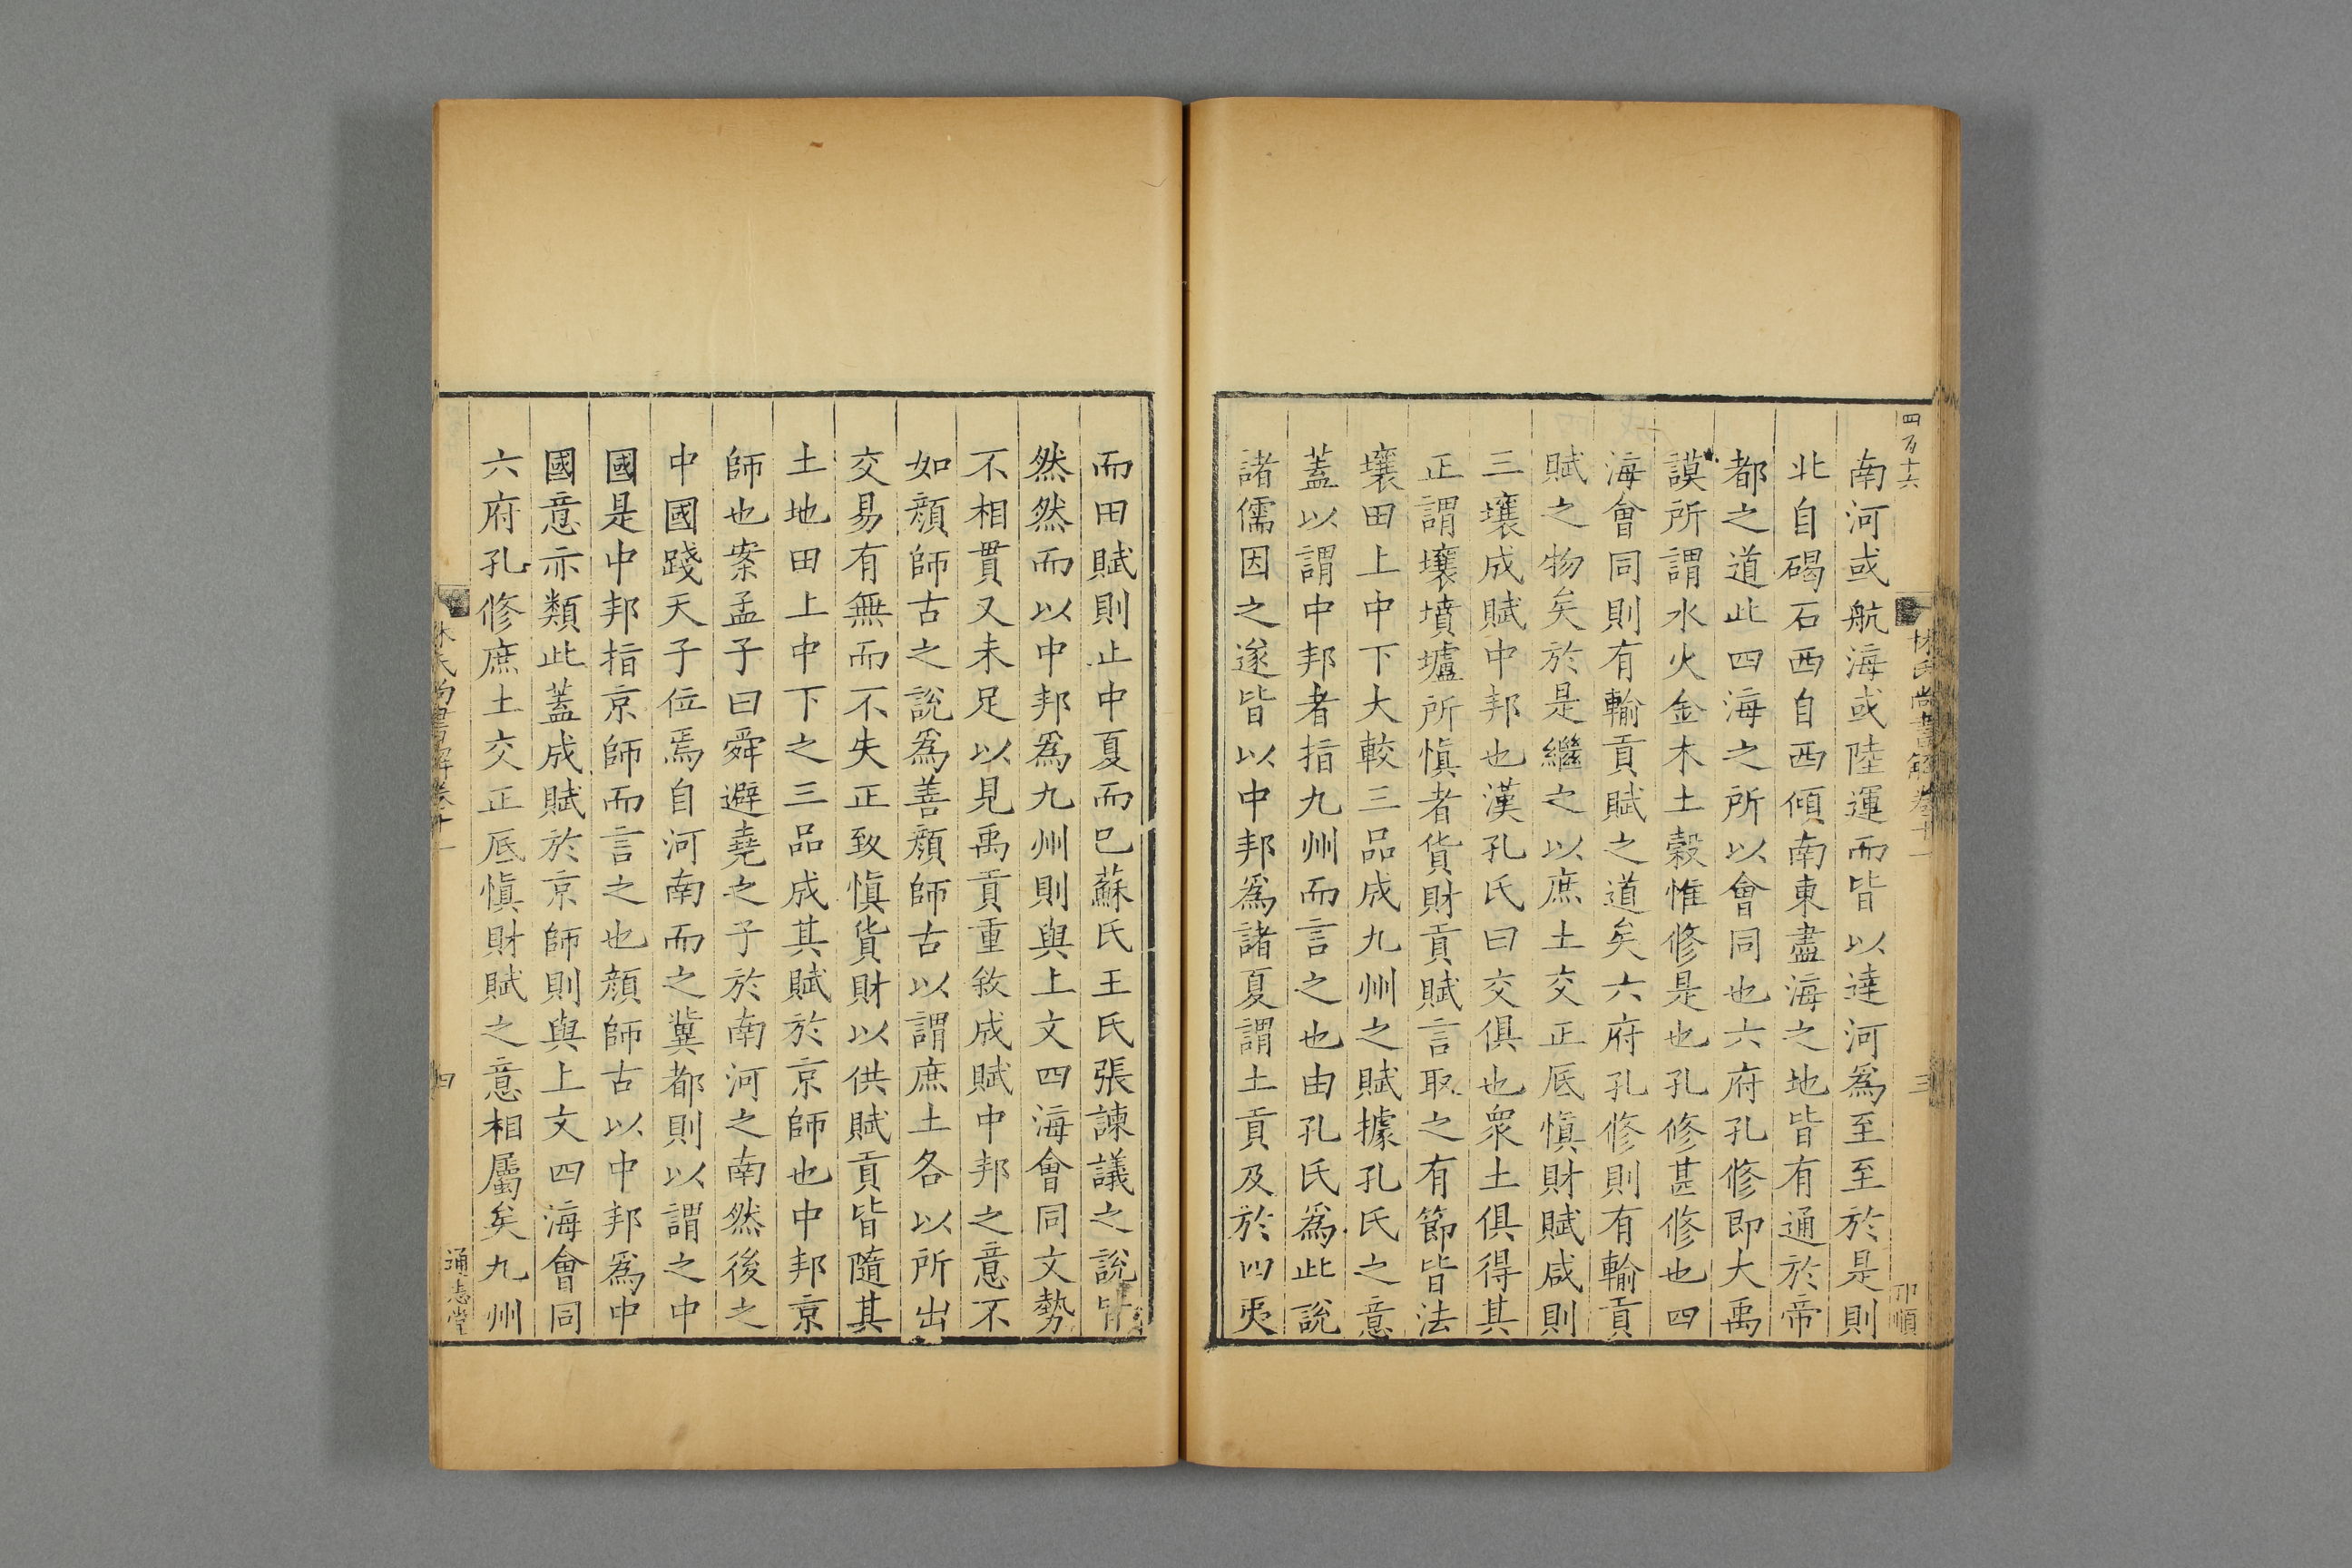 四百十六
林氏尚書解卷十一
三
卭順
南河或航海或陸運而皆以達河爲至至於是則
北自碣石西自西傾南東盡海之地皆有通於帝
都之道此四海之所以會同也六府孔修即大禹
謨所謂水火金木土穀惟修是也孔修甚修也四
海會同則有輸貢賦之道矣六府孔修則有輸貢
賦之物矣於是繼之以庶土交正底慎財賦咸則
三壤成賦中邦也漢孔氏曰交俱也衆土俱得其
正謂壤墳壚所慎者貨財貢賦言取之有節皆法
壤田上中下大較三品成九州之賦據孔氏之意
蓋以謂中邦者指九州而言之也由孔氏爲此說
諸儒因之遂皆以中邦爲諸夏謂土貢及於四夷
而田賦則止中夏而已蘇氏王氏張諫議之說皆
然然而以中邦爲九州則與上文四海會同文勢
不相貫又未足以見禹貢重敘成賦中邦之意不
如顏師古之說爲善顏師古以謂庶土各以所出
交易有無而不失正致慎貨財以供賦貢皆隨其
土地田上中下之三品成其賦於京師也中邦京
師也案孟子曰舜避堯之子於南河之南然後之
中國踐天子位焉自河南而之冀都則以謂之中
國是中邦指京師而言之也顏師古以中邦爲中
國意亦類此蓋成賦於京師則與上文四海會同
六府孔修庶土交正底慎財賦之意相屬矣九州
林氏尚書解卷十一
四
通志堂